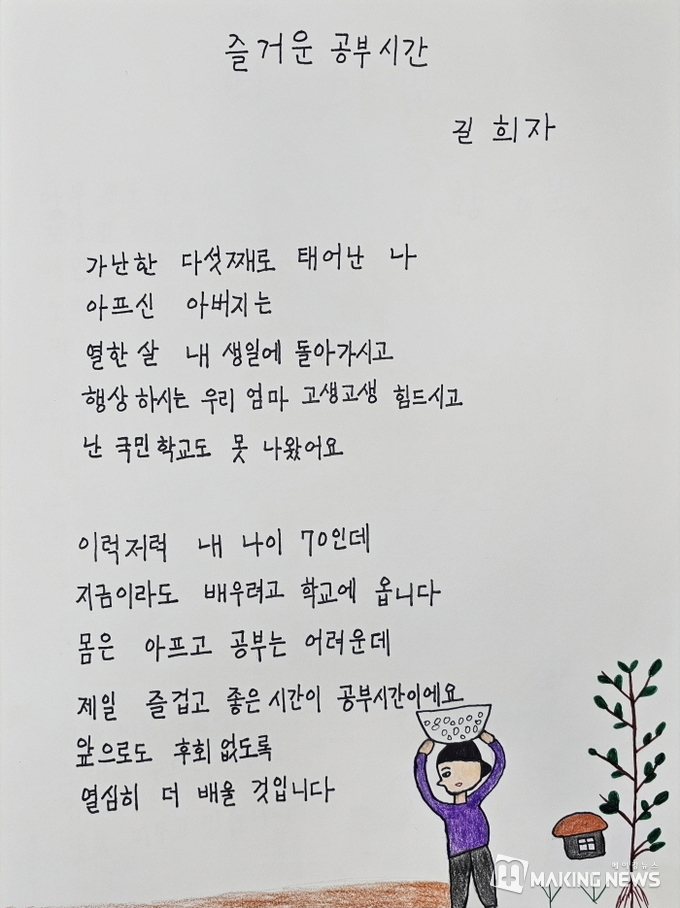 즐거운 공부시간
길 희자
가난한 다섯째로 태어난 나
아프신 아버지는
열한살 내 생일에 돌아가시고
행상하시는 우리 엄마 고생고생 힘드시고
난 국민학교도 못 나왔어요
이럭저럭 내 나이 70인데
지금이라도 배우려고 학교에 옵니다
몸은 아프고 공부는 어려운데
제일 즐겁고 좋은시간이 공부시간이에요
앞으로도 후회없도록
열심히 더 배울 것입니다
메이킹뉴스
MAKING NEWS